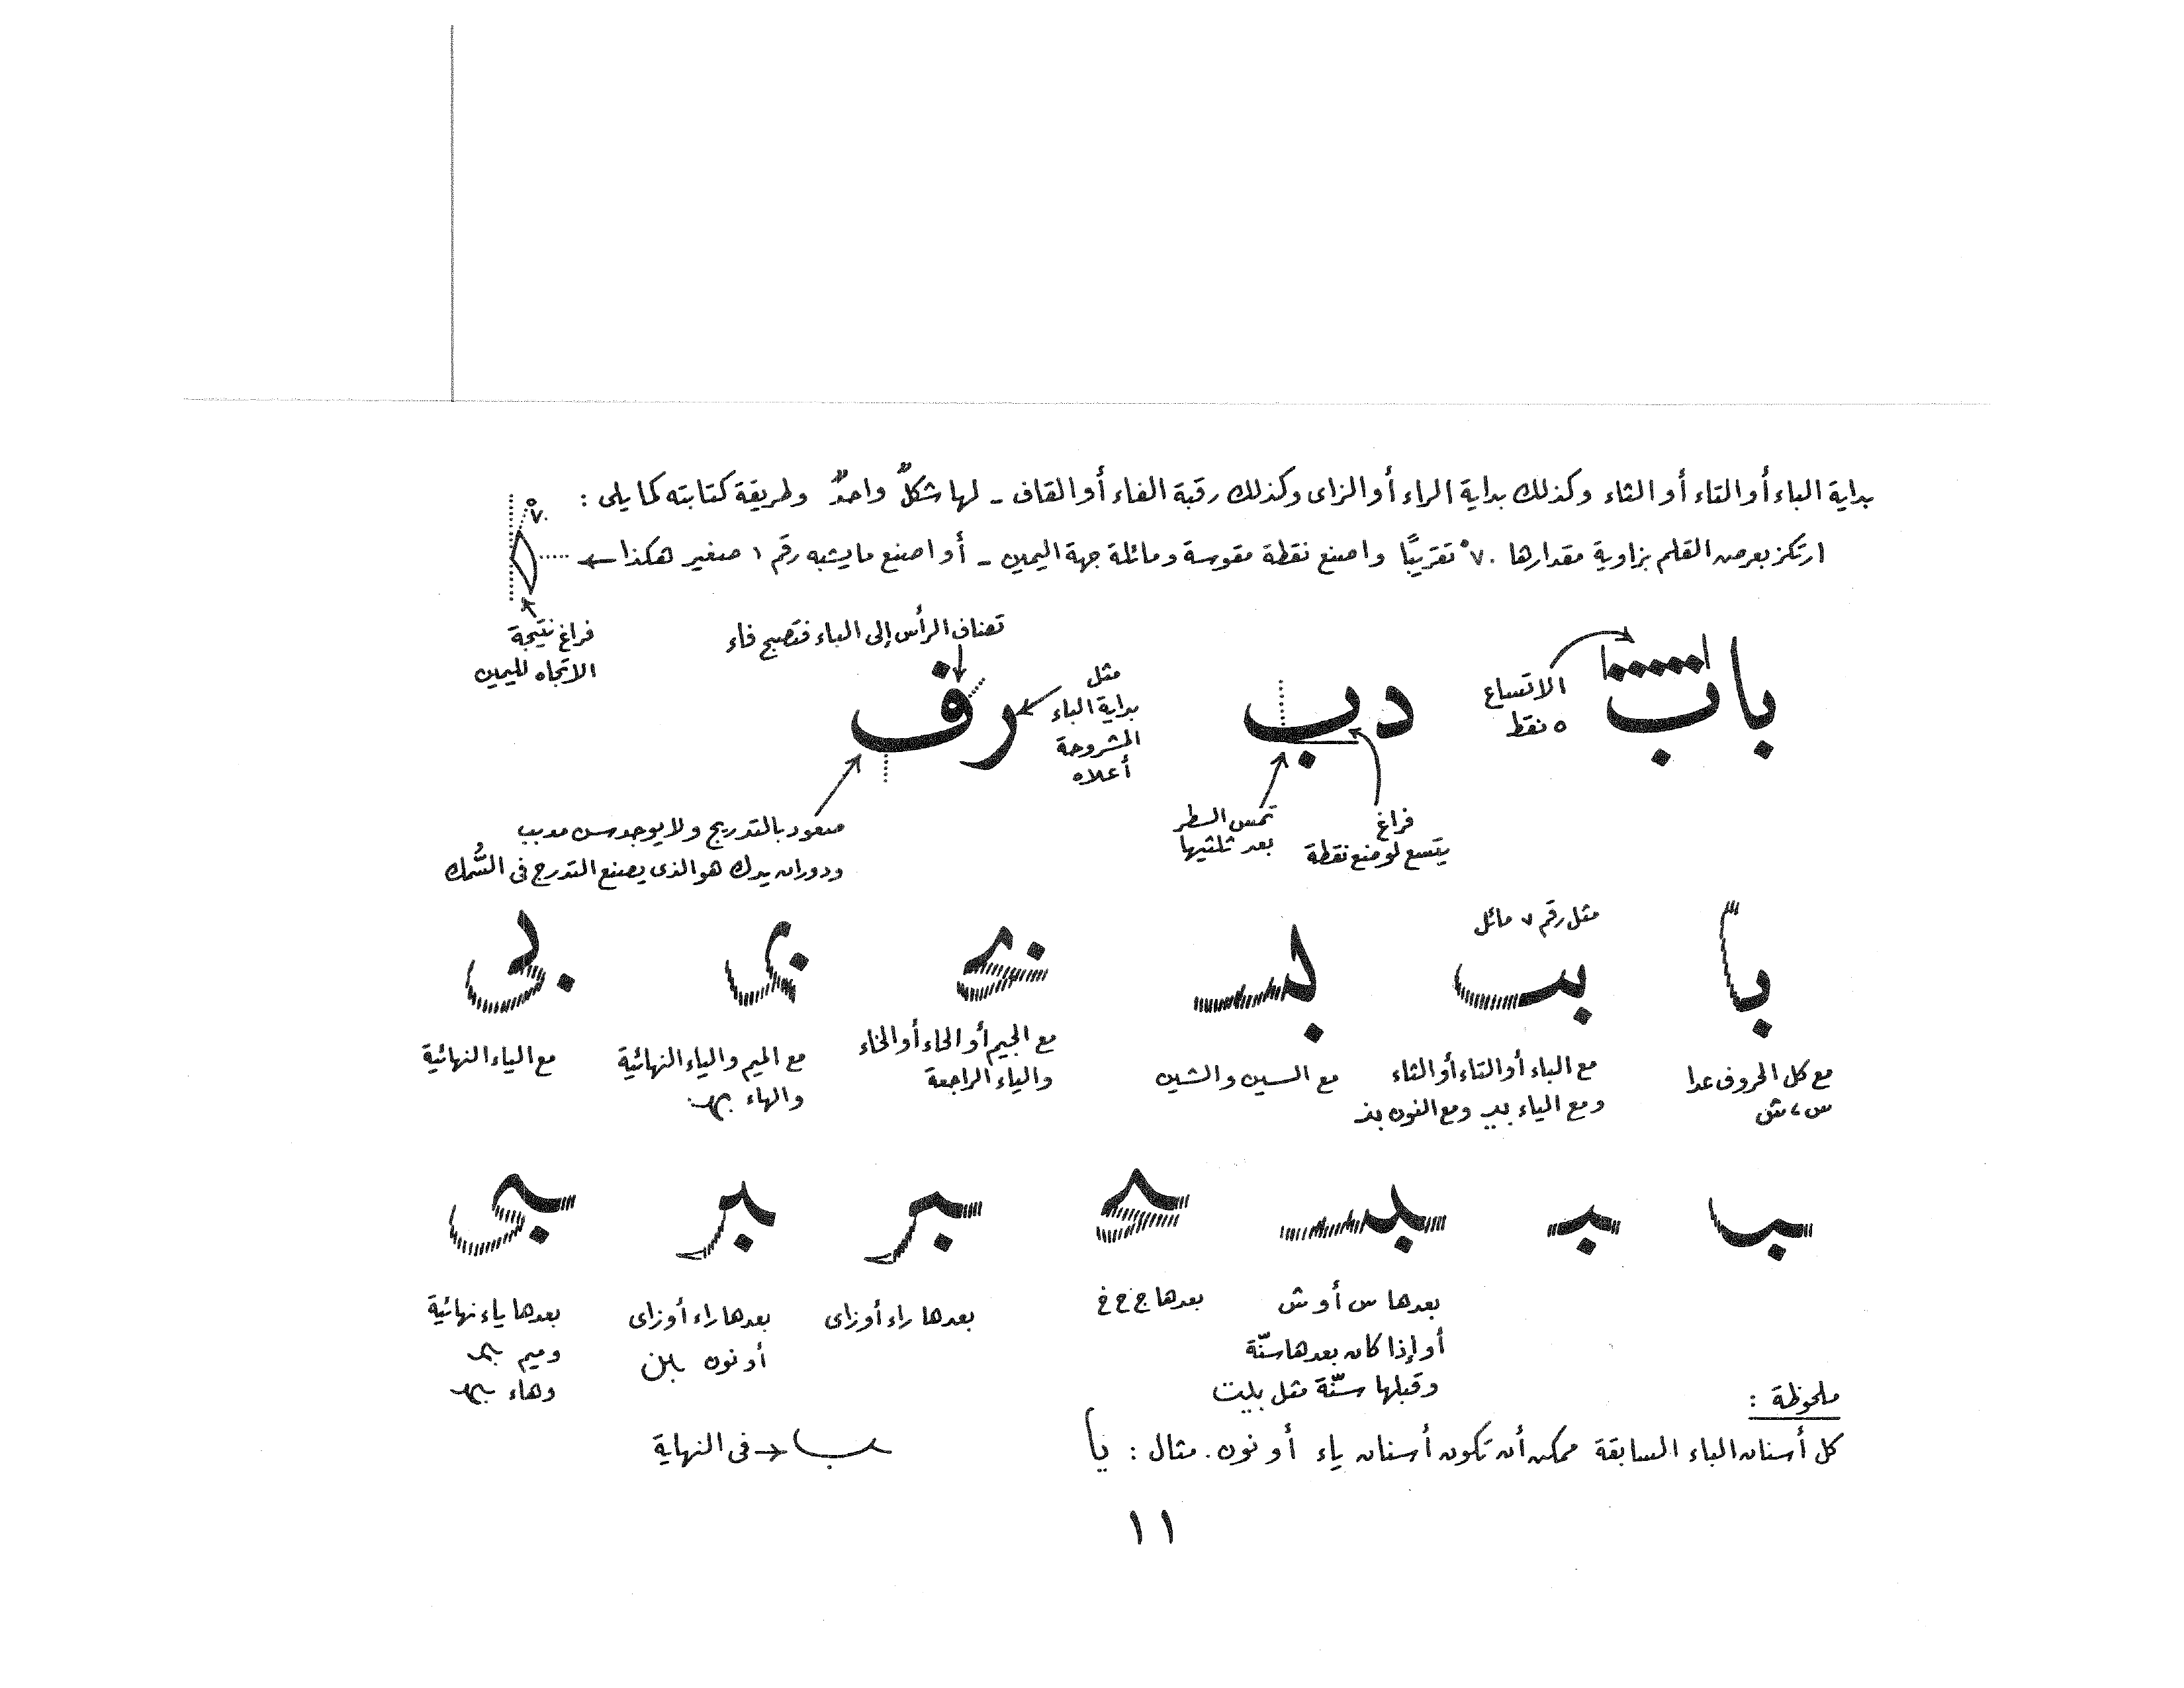 بداية الباء أو التاء أو الثاء وكذلك بداية الراء أو الزاى وكذلك رقبة الفاء أو القاف - لها شكلٌ واحدٌ وطريقة كتابته كما يلى :
ارتكز بعرض القلم بزاوية مقدارها ٧٠° تقريبًا واصنع نقطة مقوسة ومائلة جهة اليمين - أو اصنع ما يشبه رقم ١ صغير هكذا
٧٠°
فراغ نتيجة
الاتجاه لليمين
باب
الاتساع
٥ نقط
دب
فراغ
يتسع لوضع نقطة
تمس السطر
بعد ثلثيها
رف
تضاف الرأس إلى الباء فتصبح فاء
مثل
بداية الباء
المشروحة
أعلاه
صعود بالتدريج ولا يوجد سن مدبب
ودوران يدك هو الذى يصنع التدرج فى السُّمك
با
مثل رقم ٧ مائل
مع كل الحروف عدا
س ، ش
مع الباء أو التاء أو الثاء
ومع الياء بيـ ومع النون بنـ
مع السين والشين
مع الجيم أو الحاء أو الخاء
والياء الراجعة
مع الميم والياء النهائية
والهاء بهـ
مع الياء النهائية
بعدها س أو ش
أو إذا كان بعدها سنّة
وقبلها سنّة مثل بليت
بعدها ج ح خ
بعدها راء أو زاى
بعدها راء أو زاى
أو نون
بعدها ياء نهائية
وميم
وهاء
ملحوظة :
كل أسنان الباء السابقة ممكن أن تكون أسنان ياء أو نون . مثال : يا
ـب
فى النهاية
١١